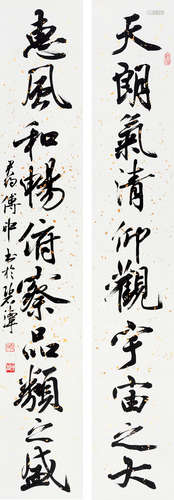 天朗氣清仰觀宇宙之大
惠風和暢俯察品類之盛
君約傅申書於碧潭